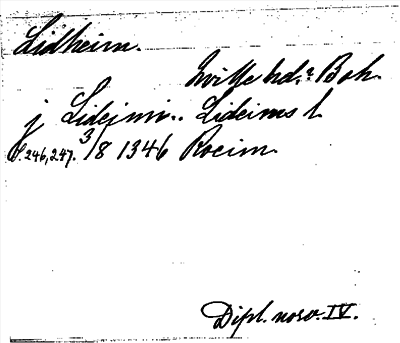 Lidheim.
Tuitte hd.? Boh.
j Lidejmi.. Lideims l.
S. 246, 247. 3/8 1346 Roeim.
Dipl. norv. IV.